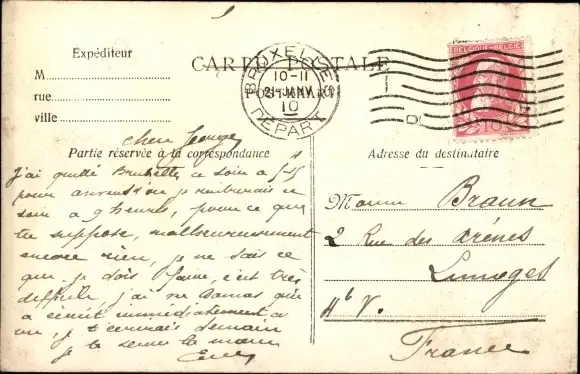 Expéditeur
M
rue
ville
CARTE POSTALE
POSTKAART
BRUXELLES
10-11
21 JANV
10
DEPART
BELGIQUE-BELGIE
10
Partie réservée à la correspondance
Adresse du destinataire
cher Georges
J'ai quitté Bruxelles ce soir à
pour
soir à 9 heures, pour ce que
tu suppose, malheureusement
encore rien, je ne sais ce
que je dois faire, c'est très
difficile, j'ai vu Damas qui
a écrit immédiatement à
je t'écrirais demain
je te serre la main
M Braun
2 Rue des Arènes
Limoges
Hte V.
France